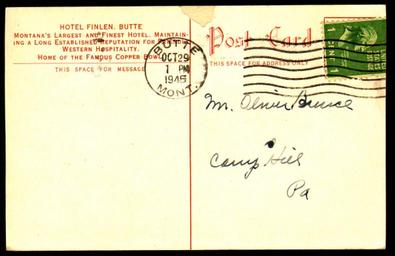 HOTEL FINLEN, BUTTE
MONTANA'S LARGEST AND FINEST HOTEL. MAINTAIN-
ING A LONG ESTABLISHED REPUTATION FOR
WESTERN HOSPITALITY.
HOME OF THE FAMOUS COPPER BOWL
THIS SPACE FOR MESSAGE
BUTTE
OCT 29
1 PM
1945
MONT.
Post Card
THIS SPACE FOR ADDRESS ONLY
Mr. Oliver
Camp Hill
Pa